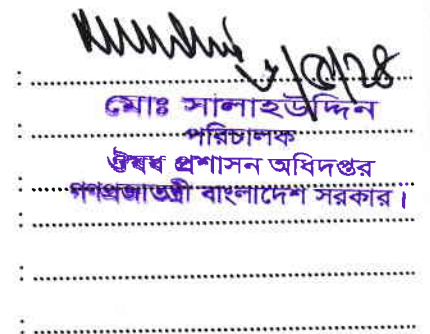 মোঃ সালাহউদ্দিন
পরিচালক
ঔষধ প্রশাসন অধিদপ্তর
গণপ্রজাতন্ত্রী বাংলাদেশ সরকার।